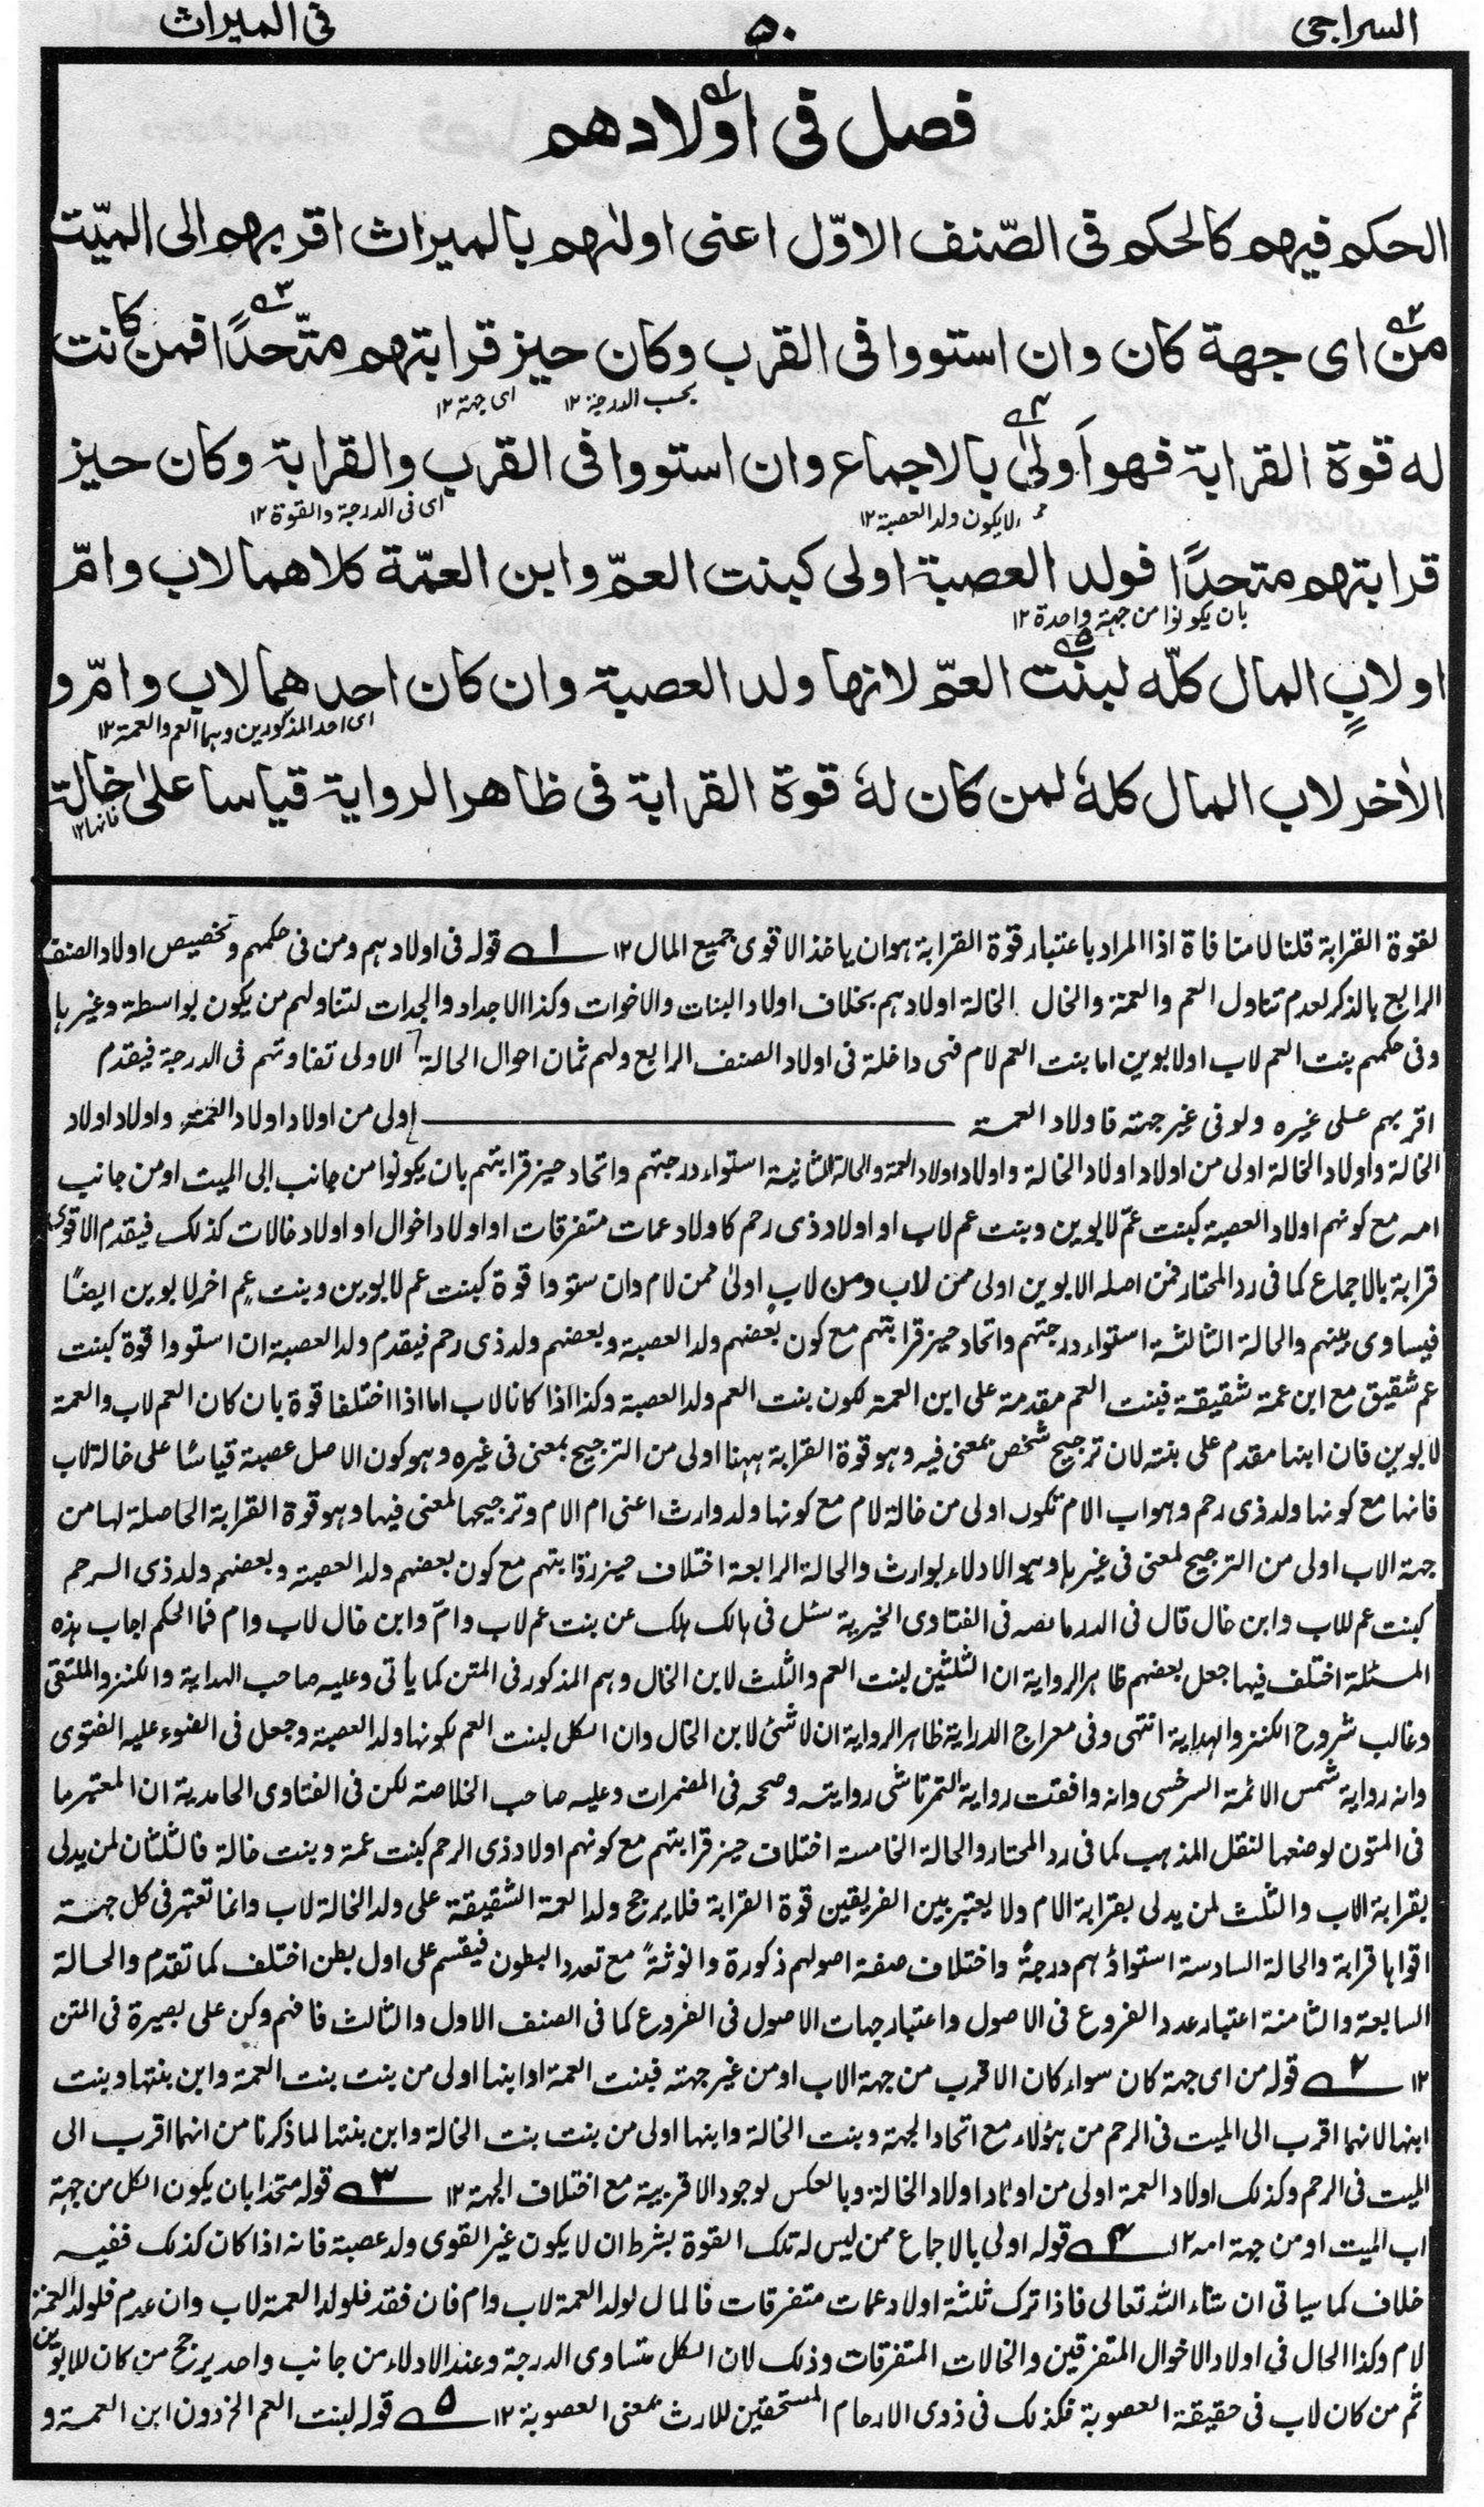 السراجى ۵۰ فى الميراث
فصل فى اولادهم
الحكم فيهم كالحكم فى الصّنف الاوّل اعنى اولٰهم بالميراث اقربهم الى الميّت
من اى جهة كان وان استووا فى القرب وكان حيز قرابتهم متّحدًا فمن كانت
بحسب الدرجة ١٢ اى جهة ١٢
له قوة القرابة فهو اَولىٰ بالاجماع وان استووا فى القرب والقرابة وكان حيز
لايكون ولد العصبة ١٢ اى فى الدرجة والقوة ١٢
قرابتهم متحدًا فولد العصبة اولى كبنت العمّ وابن العمّة كلاهما لاب وامّ
بان يكونوا من جهة واحدة ١٢
او لابٍ المال كلّه لبنت العمّ لانها ولد العصبة وان كان احدهما لاب وامّ و
اى احد المذكورين وهما العم والعمة ١٢
الاٰخر لاب المال كلهٗ لمن كان لهٗ قوة القرابة فى ظاهر الرواية قياسا علىٰ خالة
فانها ١٢
لقوة القرابة قلنا لا منافاة اذ المراد باعتبار قوة القرابة هو ان ياخذ الاقوى جميع المال ١٢ ١ قوله فى اولادهم ومن فى حكمهم وتخصيص اولاد الصنف
الرابع بالذكر لعدم تناول العم والعمة والخال الخالة اولادهم بخلاف اولاد البنات والاخوات وكذا الاجداد والجدات لتناولهم من يكون بواسطة وغيرها
وفى حكمهم بنت العم لاب او لابوين اما بنت العم لام فهى داخلة فى اولاد الصنف الرابع ولهم ثمان احوال الحالة الاولى تفاوتهم فى الدرجة فيقدم
اقربهم على غيره ولو فى غير جهته فاولاد العمة اولى من اولاد اولاد العمة واولاد اولاد
الخالة واولاد الخالة اولى من اولاد اولاد الخالة واولاد اولاد العمة والحالة الثانية استواء درجتهم واتحاد حيز قرابتهم بان يكونوا من جانب ابى الميت او من جانب
امه مع كونهم اولاد العصبة كبنت عمّ لابوين وبنت عم لاب او اولاد ذى رحم كاولاد عمات متفرقات او اولاد اخوال او اولاد خالات كذلك فيقدم الاقوى
قرابة بالاجماع كما فى رد المحتار فمن اصله لابوين اولى ممن لاب ومن لاب اولىٰ ممن لام وان ستووا قوة كبنت عم لابوين وبنت عم اخر لابوين ايضًا
فيساوى بينهم والحالة الثالثة استواء درجتهم واتحاد حيز قرابتهم مع كون بعضهم ولد العصبة وبعضهم ولد ذى رحم فيقدم ولد العصبة ان استووا قوة كبنت
عم شقيق مع ابن عمة شقيقة فبنت العم مقدمة على ابن العمة لكون بنت العم ولد العصبة وكذا اذا كانا لاب اما اذا اختلفا قوة بان كان العم لاب والعمة
لابوين فان ابنها مقدم على بنته لان ترجيح شخص بمعنى فيه وهو قوة القرابة ههنا اولى من الترجيح بمعنى فى غيره وهو كون الاصل عصبة قياسًا على خالة لاب
فانها مع كونها ولد ذى رحم وهو اب الام تكون اولى من خالة لام مع كونها ولد وارث اعنى ام الام وترجيحها لمعنى فيها وهو قوة القرابة الحاصلة لها من
جهة الاب اولى من الترجيح لمعنى فى غيرها وهو الادلاء بوارث والحالة الرابعة اختلاف حيز قرابتهم مع كون بعضهم ولد العصبة وبعضهم ولد ذى الرحم
كبنت عم للاب وابن خال قال فى الدر ما نصه فى الفتاوى الخيرية سئل فى هالك هلك عن بنت عم لاب وامّ وابن خال لاب وام فما الحكم اجاب هذه
المسئلة اختلف فيها جعل بعضهم ظاهر الرواية ان الثلثين لبنت العم والثلث لابن الخال وهم المذكور فى المتن كما يأتى وعليه صاحب الهداية والكنز والملتقى
وغالب شروح الكنز والهداية انتهى وفى معراج الدراية ظاهر الرواية ان لا شئ لابن الخال وان الكل لبنت العم لكونها ولد العصبة وجعل فى الضوء عليه الفتوى
وانه رواية شمس الائمة السرخسى وانه وافقت رواية التمرتاشى روايته وصححه فى المضمرات وعليه صاحب الخلاصة لكن فى الفتاوى الحامدية ان المعتبر ما
فى المتون لوضعها لنقل المذهب كما فى رد المحتار والحالة الخامسة اختلاف حيز قرابتهم مع كونهم اولاد ذى الرحم كبنت عمة وبنت خالة فالثلثان لمن يدلى
بقرابة الاب والثلث لمن يدلى بقرابة الام ولا يعتبر بين الفريقين قوة القرابة فلا يرجح ولد العمة الشقيقة على ولد الخالة لاب وانما تعتبر فى كل جهة
اقواها قرابة والحالة السادسة استواؤهم درجةً واختلاف صفة اصولهم ذكورة وانوثةً مع تعدد البطون فيقسم على اول بطن اختلف كما تقدم والحالة
السابعة والثامنة اعتبار عدد الفروع فى الاصول واعتبار جهات الاصول فى الفروع كما فى الصنف الاول والثالث فافهم وكن على بصيرة فى المتن
١٢ ٢ قوله من اى جهة كان سواء كان الاقرب من جهة الاب او من غير جهته فبنت العمة او ابنها اولى من بنت بنت العمة وابن بنتها وبنت
ابنها لانهما اقرب الى الميت فى الرحم من هؤلاء مع اتحاد الجهة وبنت الخالة وابنها اولى من بنت بنت الخالة وابن بنتها لما ذكرنا من انهما اقرب الى
الميت فى الرحم وكذلك اولاد العمة اولى من اولاد اولاد الخالة وبالعكس لوجود الاقربية مع اختلاف الجهة ١٢ ٣ قوله متحدا بان يكون الكل من جهة
اب الميت او من جهة امه ١٢ ٤ قوله اولى بالاجماع ممن ليس له تلك القوة بشرط ان لا يكون غير القوى ولد عصبة فانه اذا كان كذلك ففيه
خلاف كما سياتى ان شاء الله تعالى فاذا ترك ثلثة اولاد عمات متفرقات فالمال لولد العمة لاب وام فان فقد فلولد العمة لاب وان عدم فلولد العمة
لام وكذا الحال فى اولاد الاخوال المتفرقين والخالات المتفرقات وذلك لان الكل متساوى الدرجة وعند الادلاء من جانب واحد يرجح من كان للابوين
ثم من كان لاب فى حقيقة العصوبة فكذلك فى ذوى الارحام المستحقين للارث بمعنى العصوبة ١٢ ٥ قوله لبنت العم الخ دون ابن العمة و